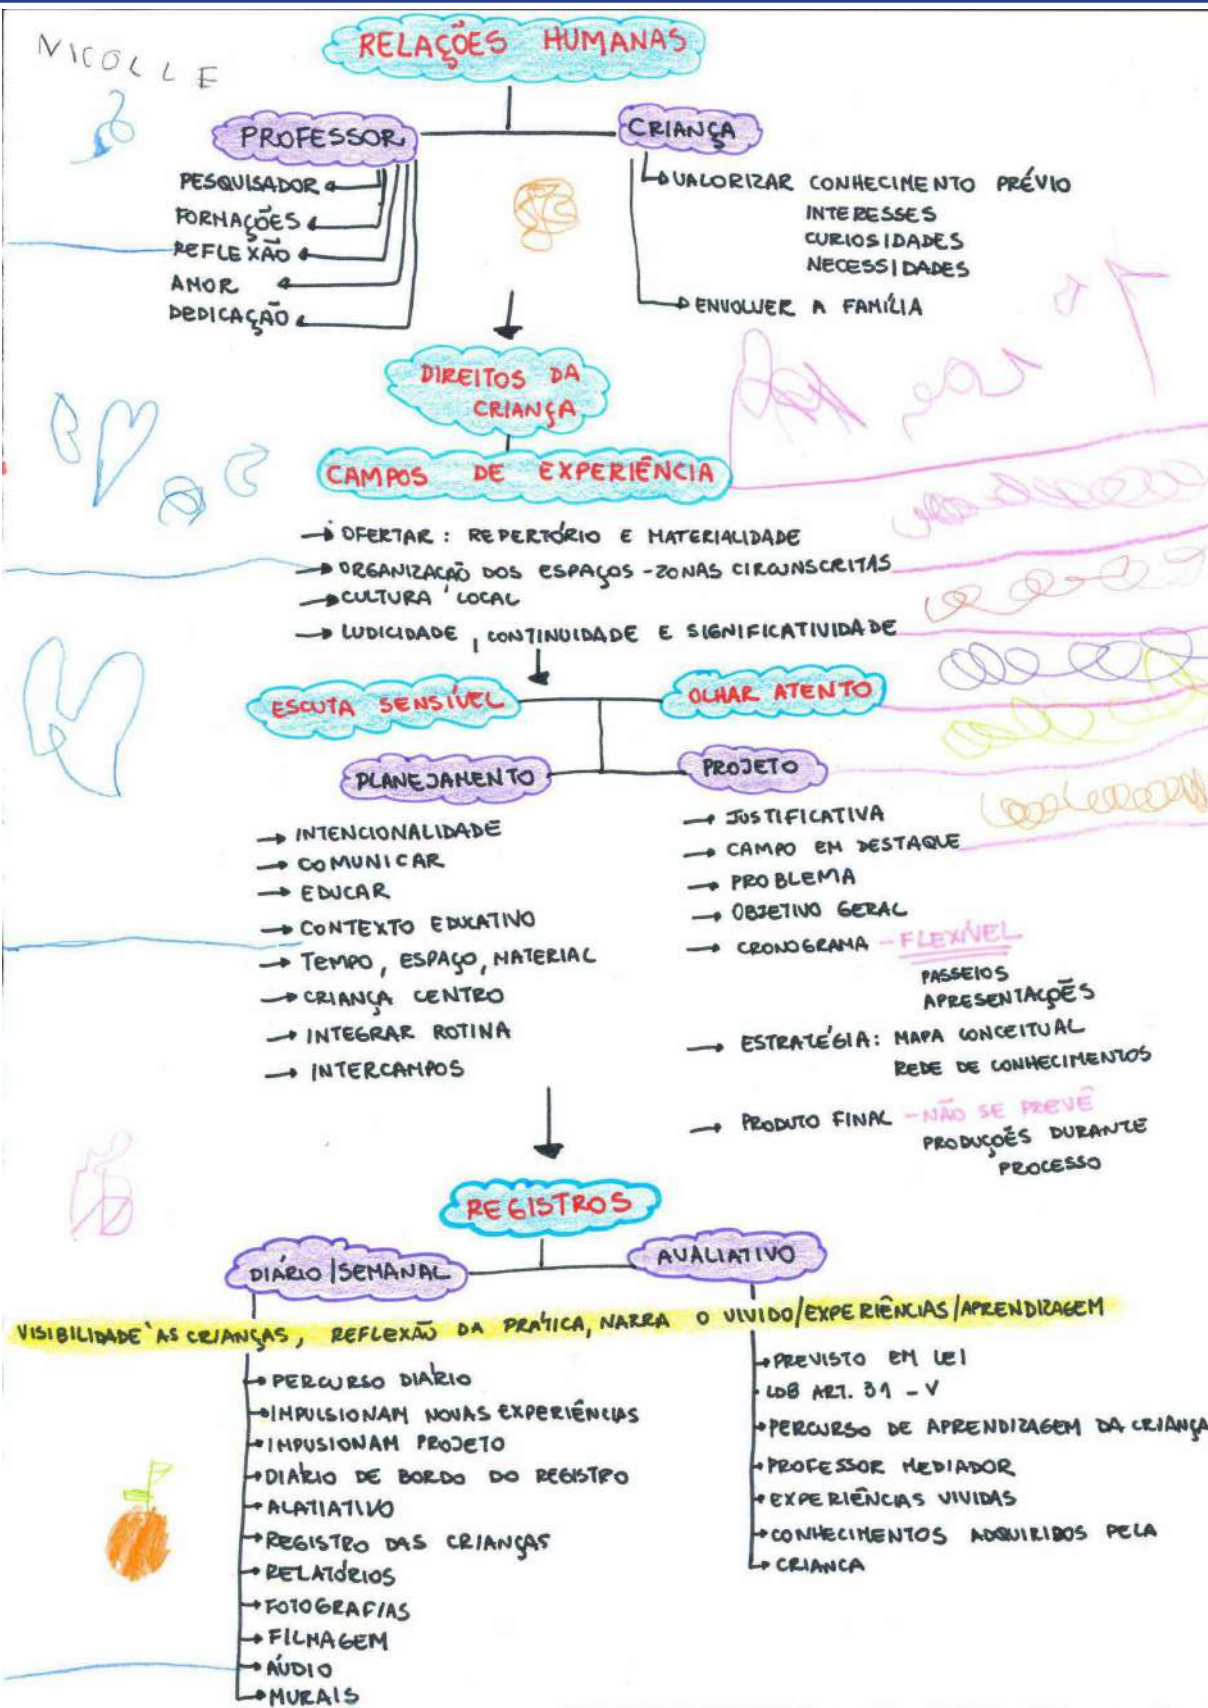 NICOLLE
RELAÇÕES HUMANAS
PROFESSOR
PESQUISADOR
FORMAÇÕES
REFLEXÃO
AMOR
DEDICAÇÃO
CRIANÇA
VALORIZAR CONHECIMENTO PRÉVIO
INTERESSES
CURIOSIDADES
NECESSIDADES
ENVOLVER A FAMÍLIA
DIREITOS DA
CRIANÇA
CAMPOS DE EXPERIÊNCIA
OFERTAR: REPERTÓRIO E MATERIALIDADE
ORGANIZAÇÃO DOS ESPAÇOS - ZONAS CIRCUNSCRITAS
CULTURA LOCAL
LUDICIDADE, CONTINUIDADE E SIGNIFICATIVIDADE
ESCUTA SENSÍVEL
OLHAR ATENTO
PLANEJAMENTO
INTENCIONALIDADE
COMUNICAR
EDUCAR
CONTEXTO EDUCATIVO
TEMPO, ESPAÇO, MATERIAL
CRIANÇA CENTRO
INTEGRAR ROTINA
INTERCAMPOS
PROJETO
JUSTIFICATIVA
CAMPO EM DESTAQUE
PROBLEMA
OBJETIVO GERAL
CRONOGRAMA - FLEXÍVEL
PASSEIOS
APRESENTAÇÕES
ESTRATÉGIA: MAPA CONCEITUAL
REDE DE CONHECIMENTOS
PRODUTO FINAL - NÃO SE PREVÊ
PRODUÇÕES DURANTE
PROCESSO
REGISTROS
DIÁRIO/SEMANAL
AVALIATIVO
VISIBILIDADE ÀS CRIANÇAS, REFLEXÃO DA PRÁTICA, NARRA O VIVIDO/EXPERIÊNCIAS/APRENDIZAGEM
PERCURSO DIÁRIO
IMPULSIONAM NOVAS EXPERIÊNCIAS
IMPUSIONAM PROJETO
DIÁRIO DE BORDO DO REGISTRO
ALATIATIVO
REGISTRO DAS CRIANÇAS
RELATÓRIOS
FOTOGRAFIAS
FILMAGEM
ÁUDIO
MURAIS
PREVISTO EM LEI
LDB ART. 31 - V
PERCURSO DE APRENDIZAGEM DA CRIANÇA
PROFESSOR MEDIADOR
EXPERIÊNCIAS VIVIDAS
CONHECIMENTOS ADQUIRIDOS PELA
CRIANCA